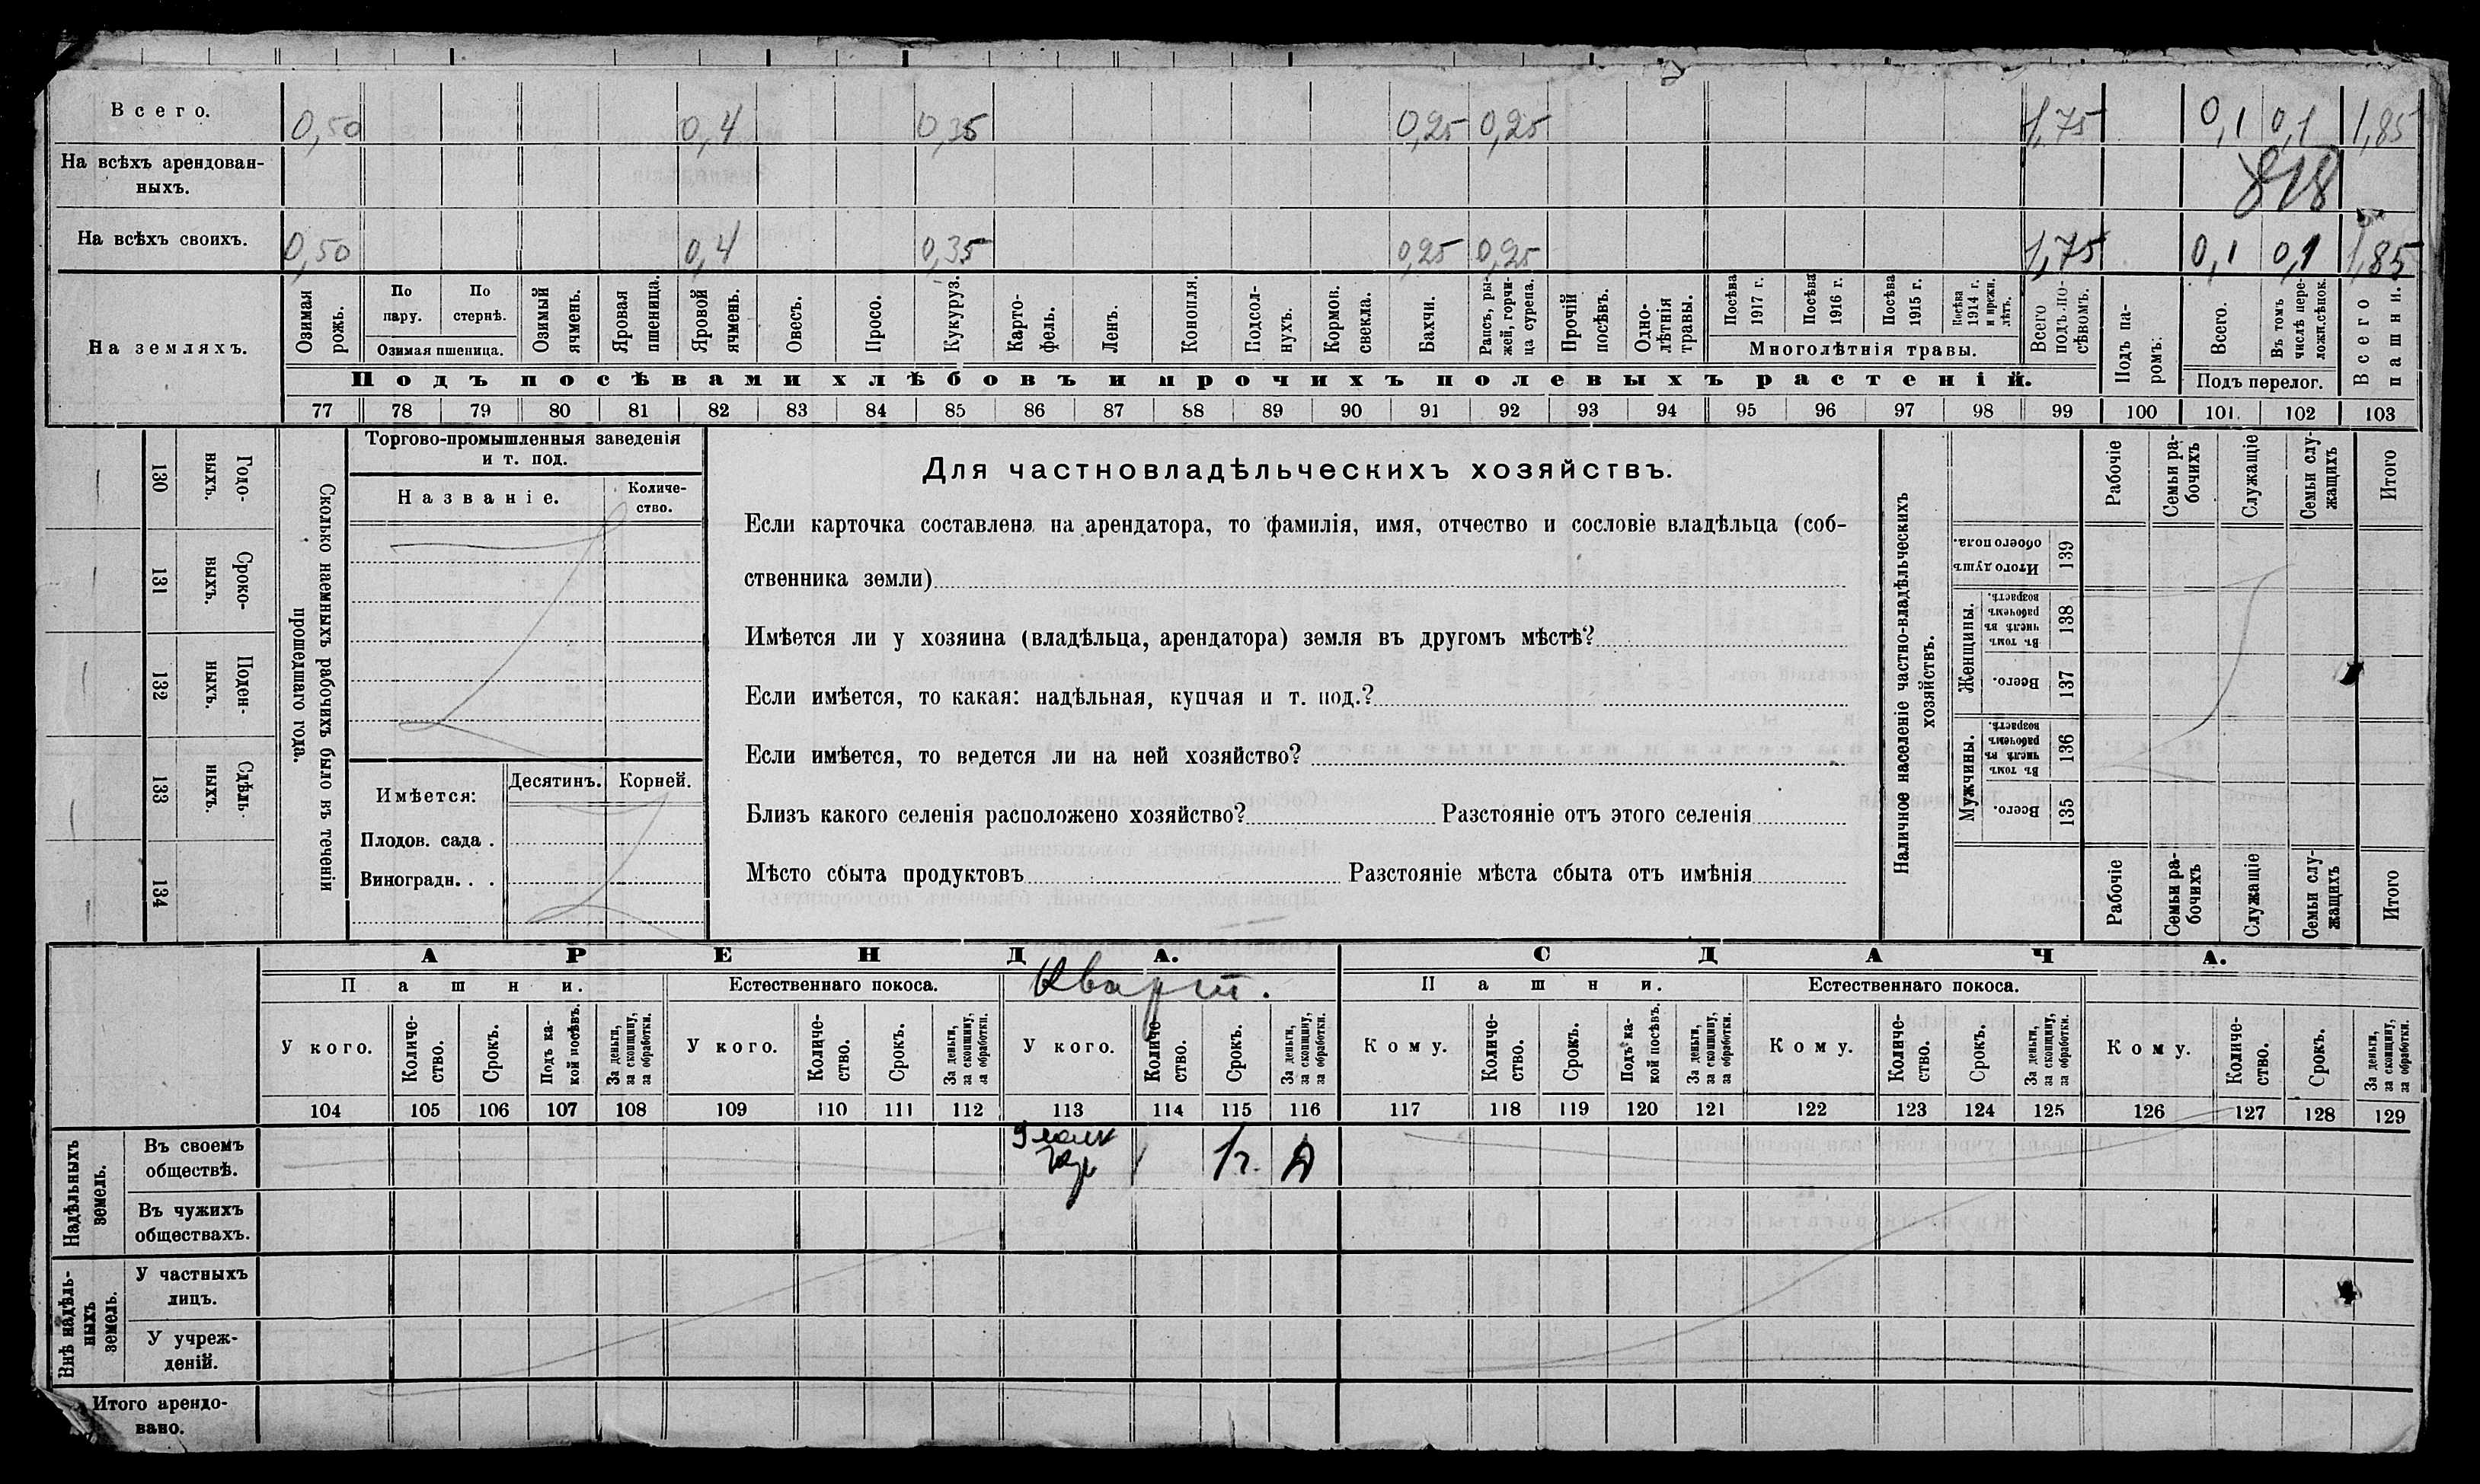 Всего. 0,50 0,4 0,35 0,25 0,25 1,75 0,1 0,1 1,85
На всѣхъ арендован-
ныхъ. 818
На всѣхъ своихъ. 0,50 0,4 0,35 0,25 0,25 1,75 0,1 0,1 1,85
На земляхъ.
Озимая рожь.
По пару.
По стернѣ.
Озимая пшеница.
Озимый ячмень.
Яровая пшеница.
Яровой ячмень.
Овесъ.
Просо.
Кукуруз.
Карто-
фель.
Ленъ.
Конопля.
Подсол-
нухъ.
Кормов.
свекла.
Бахчи.
Рапсъ, ры-
жей, горчи-
ца сурепа.
Прочій
посѣвъ.
Одно-
лѣтнія
травы.
Посѣва
1917 г.
Посѣва
1916 г.
Посѣва
1915 г.
Посѣва
1914 г.
и прежн.
лѣтъ.
Многолѣтнія травы.
Всего
подъ по-
сѣвомъ.
Подъ па-
ромъ.
Всего.
Въ томъ
числѣ пере-
ложн.сѣнок.
Подъ перелог.
Всего
пашни.
Подъ посѣвами хлѣбовъ и прочихъ полевыхъ растеній.
77 78 79 80 81 82 83 84 85 86 87 88 89 90 91 92 93 94 95 96 97 98 99 100 101. 102 103
130 Годо-
выхъ.
131 Сроко-
выхъ.
132 Поден-
ныхъ.
133 Сдѣль-
ныхъ.
134
Сколько наемныхъ рабочихъ было въ теченіи
прошедшаго года.
Торгово-промышленныя заведенія
и т. под.
Названіе.
Количе-
ство.
Имѣется:
Десятинъ. Корней.
Плодов. сада .
Виноградн. . .
Для частновладѣльческихъ хозяйствъ.
Если карточка составлена на арендатора, то фамилія, имя, отчество и сословіе владѣльца (соб-
ственника земли)
Имѣется ли у хозяина (владѣльца, арендатора) земля въ другомъ мѣстѣ?
Если имѣется, то какая: надѣльная, купчая и т. под.?
Если имѣется, то ведется ли на ней хозяйство?
Близъ какого селенія расположено хозяйство? Разстояніе отъ этого селенія
Мѣсто сбыта продуктовъ Разстояніе мѣста сбыта отъ имѣнія
Наличное населеніе частно-владѣльческихъ
хозяйствъ.
Рабочіе
Семьи ра-
бочихъ
Служащіе
Семьи слу-
жащихъ
Итого
Итого душъ
обоего пола.
139
Женщины.
Въ томъ
числѣ въ
рабочемъ
возрастѣ.
138
Всего.
137
Мужчины.
Въ томъ
числѣ въ
рабочемъ
возрастѣ.
136
Всего.
135
Рабочіе
Семьи ра-
бочихъ
Служащіе
Семьи слу-
жащихъ
Итого
АРЕНДА. СДАЧА.
Пашни. Естественнаго покоса. Кварт. Пашни. Естественнаго покоса.
У кого.
Количе-
ство.
Срокъ.
Подъ ка-
кой посѣвъ.
За деньги,
за скопщину,
за обработки.
У кого.
Количе-
ство.
Срокъ.
За деньги,
за скопщину,
за обработки.
У кого.
Количе-
ство.
Срокъ.
За деньги,
за скопщину,
за обработки.
Кому.
Количе-
ство.
Срокъ.
Подъ ка-
кой посѣвъ.
За деньги,
за скопщину,
за обработки.
Кому.
Количе-
ство.
Срокъ.
За деньги,
за скопщину,
за обработки.
Кому.
Количе-
ство.
Срокъ.
За деньги,
за скопщину,
за обработки.
104 105 106 107 108 109 110 111 112 113 114 115 116 117 118 119 120 121 122 123 124 125 126 127 128 129
Надѣльныхъ
земель.
Въ своемъ
обществѣ. 1 1г.
Въ чужихъ
обществахъ.
Внѣ надѣль-
ныхъ
земель.
У частныхъ
лицъ.
У учреж-
деній.
Итого арендо-
вано.